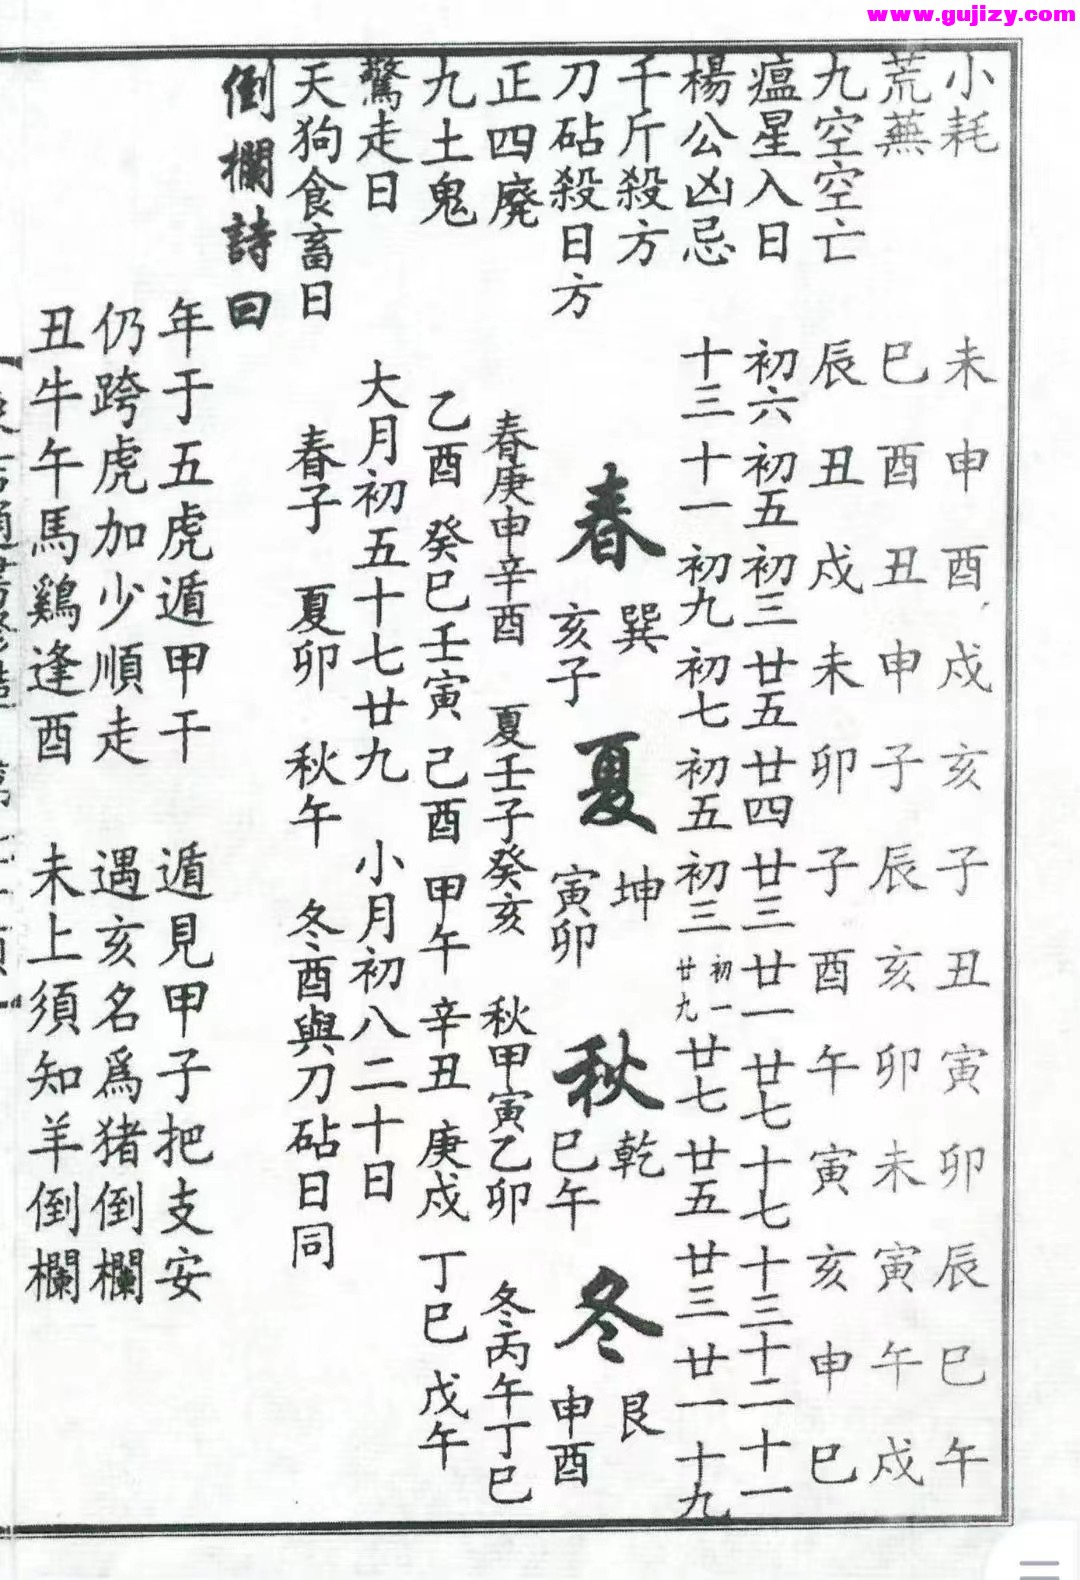 www.gujizy.com
小耗 未 申 酉 戌 亥 子 丑 寅 卯 辰 巳 午
荒蕪 巳 酉 丑 申 子 辰 亥 卯 未 寅 午 戌
九空空亡 辰 丑 戌 未 卯 子 酉 午 寅 亥 申 巳
瘟星入日 初六 初五 初三 廿五 廿四 廿三 廿一 廿七 十七 十三 十二 十一
楊公凶忌 十三 十一 初九 初七 初五 初三 初一廿九 廿七 廿五 廿三 廿一 十九
千斤殺方 春 巽 夏 坤 秋 乾 冬 艮
刀砧殺日方 亥子 寅卯 巳午 申酉
正四廢 春庚申辛酉 夏壬子癸亥 秋甲寅乙卯 冬丙午丁巳
九土鬼 乙酉 癸巳 壬寅 己酉 甲午 辛丑 庚戌 丁巳 戊午
驚走日 大月初五十七廿九 小月初八二十日
天狗食畜日 春子 夏卯 秋午 冬酉與刀砧日同
倒欄詩曰
年于五虎遁甲干 遁見甲子把支安
仍跨虎加少順走 遇亥名爲猪倒欄
丑牛午馬鷄逢酉 未上須知羊倒欄